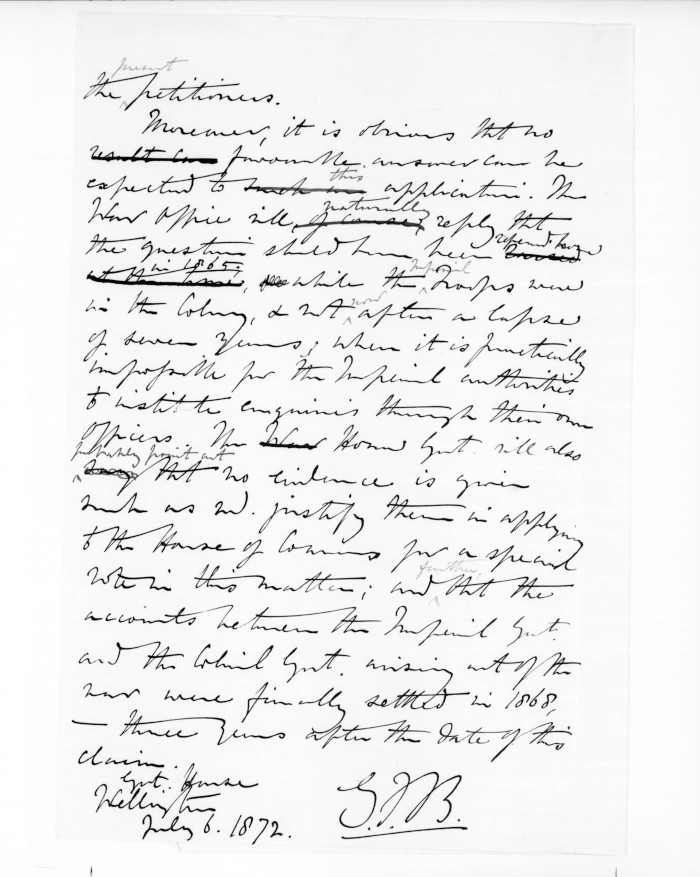 present
the petitioners.
Moreover, it is obvious that no
result can favourable answer can be
this
expected to such an application. The
naturally
War Office will, of course, reply that
the question should have been raised
in 1865,
at the time, while the Imperial Troops were
now
in the Colony, & not after a lapse
of seven years, when it is practically
impossible for the Imperial authorities
to institute enquiries through their own
Officers. The War Home Govt. will also
probably point out
say that no evidence is given
such as wd. justify them in applying
to the House of Commons for a special
further,
vote in this matter; and that the
accounts between the Imperial Govt.
and the Colonial Govt. arising out of the
war were finally settled in 1868,
— three years after the date of this
claim.
Govt. House
Wellington
July 6. 1872.
G.F.B.